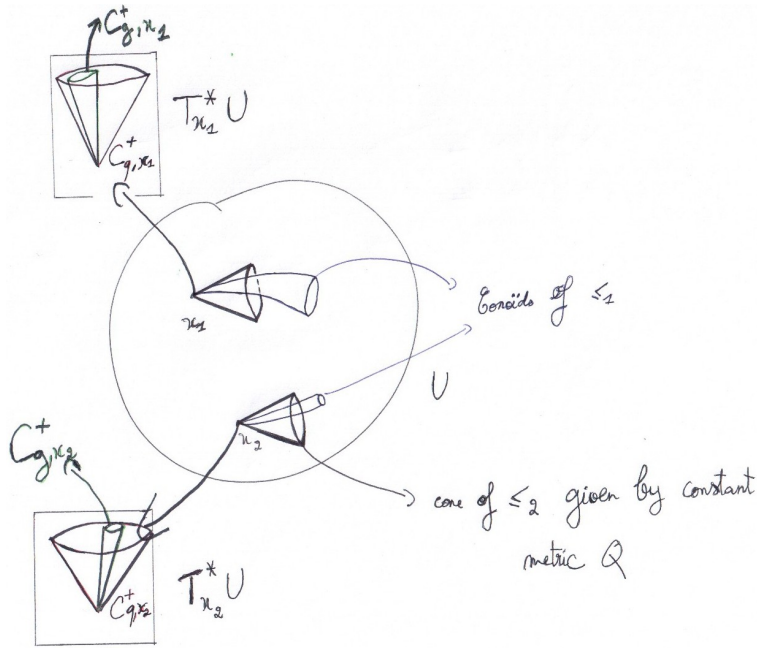 C⁺_{g,x_1}
T*_{x_1} U
C⁺_{q,x_1}
x_1
Conoïds of ≤_1
U
x_2
C⁺_{g,x_2}
cone of ≤_2 given by constant
metric Q
T*_{x_2} U
C⁺_{q,x_2}